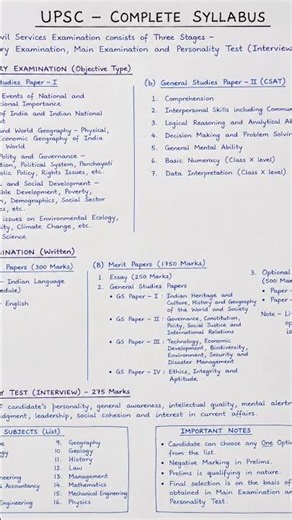 UPSC – COMPLETE SYLLABUS
ivil Services Examination consists of Three Stages –
ry Examination, Main Examination and Personality Test (Interview
RY EXAMINATION (Objective Type)
tudies Paper - I
Events of National and
national Importance
of India and Indian National
t
and World Geography - Physical,
Economic Geography of India
World
Polity and Governance -
tion, Political System, Panchayati
blic Policy, Rights Issues, etc.
and Social Development -
ble Development, Poverty,
n, Demographics, Social Sector
es, etc.
issues on Environmental Ecology,
sity, Climate Change, etc.
Science
(b) General Studies Paper - II (CSAT)
1. Comprehension
2. Interpersonal Skills including Commun
3. Logical Reasoning and Analytical Ab
4. Decision Making and Problem Solvin
5. General Mental Ability
6. Basic Numeracy (Class X level)
7. Data Interpretation (Class X level)
MINATION (Written)
Papers (300 Marks)
- Indian Language
edule)
- English
(B) Merit Papers (1750 Marks)
1. Essay (250 Marks)
2. General Studies Papers
• GS Paper - I : Indian Heritage and
Culture, History and Geography
of the World and Society
• GS Paper - II : Governance, Constitution,
Polity, Social Justice and
International Relations
• GS Paper - III : Technology, Economic
Development, Biodiversity,
Environment, Security and
Disaster Management
• GS Paper - IV : Ethics, Integrity
and Aptitude
3. Optional
(500 Mar
• Paper -
• Paper -
Note - Li
op
is
Y TEST (INTERVIEW) – 275 Marks
f candidate's personality, general awareness, intellectual quality, mental alertn
udgment, leadership, social cohesion and interest in current affairs.
SUBJECTS (List)
9. Geography
10. Geology
11. History
12. Law
13. Management
14. Mathematics
15. Mechanical Engineering
16. Physics
re
gy
neering
& Accountancy
Engineering
IMPORTANT NOTES
• Candidate can choose any One Option
from the list.
• Negative Marking in Prelims.
• Prelims is qualifying in nature.
• Final selection is on the basis of
obtained in Main Examination and
Personality Test.